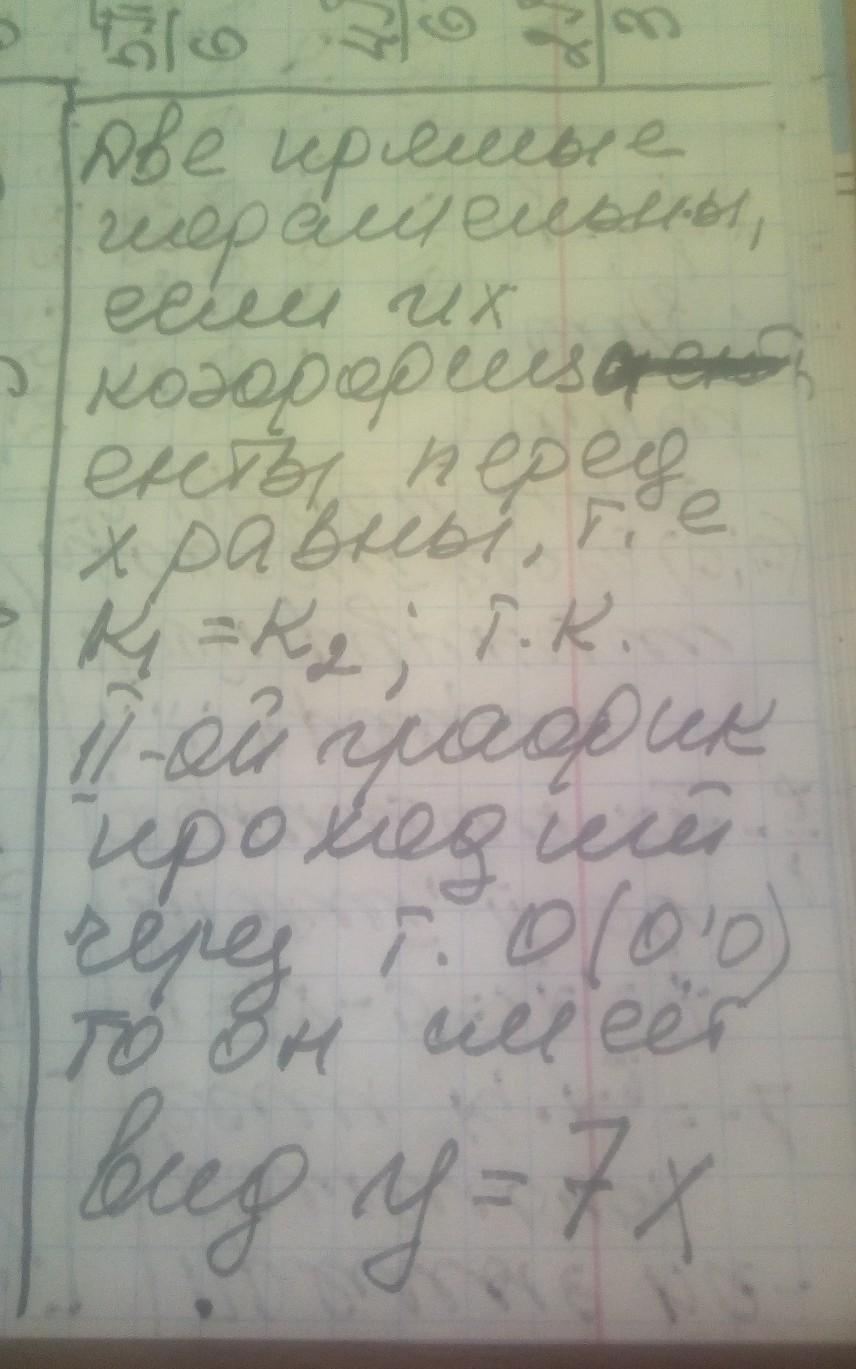 Две прямые
параллельны,
если их
коэффици
енты перед
х равны, т. е
к₁ = к₂ ; т.к.
II-ой график
проходит
через т. О(0;0)
то он имеет
вид у = 7х